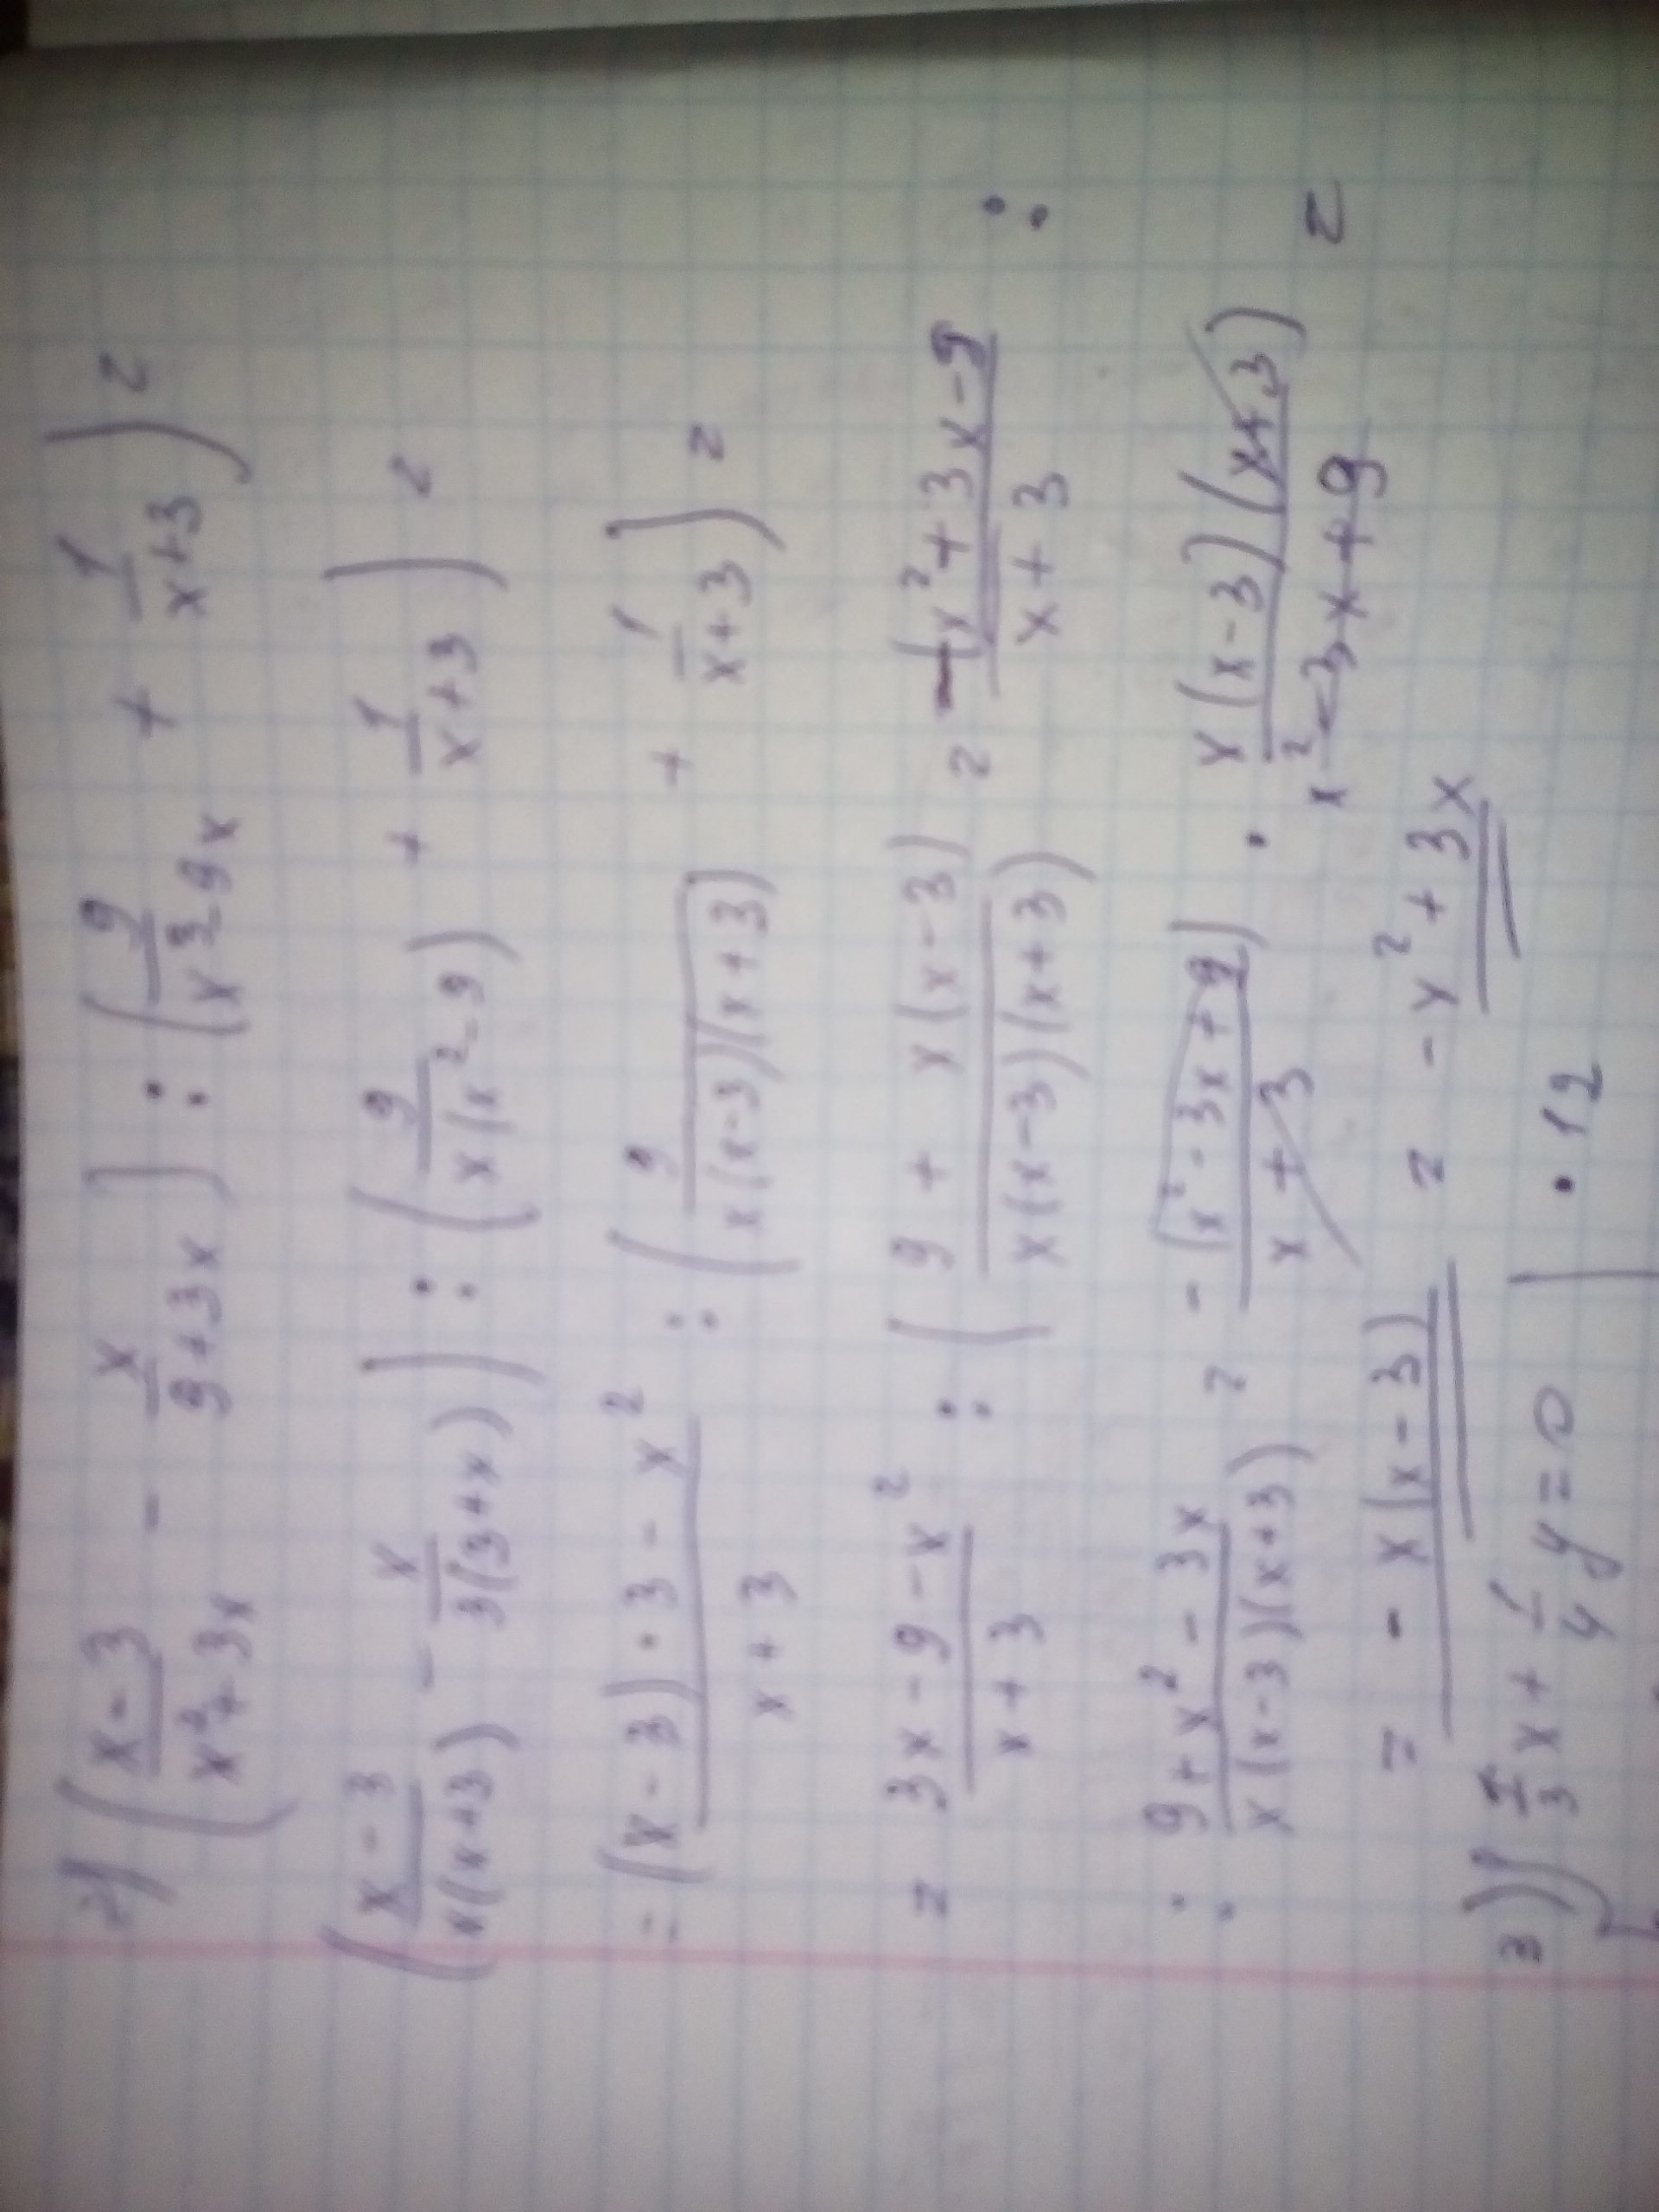 2) ((x-3)/(x²+3x) - x/(9+3x)) : (9/(x³-9x) + 1/(x+3)) =
((x-3)/(x(x+3)) - x/(3(3+x))) : (9/(x(x²-9)) + 1/(x+3)) =
= ((x-3)·3-x²)/(x+3) : (9/(x(x-3)(x+3)) + 1/(x+3)) =
= (3x-9-x²)/(x+3) : (9+x(x-3))/(x(x-3)(x+3)) = -(x²+3x-9)/(x+3) :
: (9+x²-3x)/(x(x-3)(x+3)) = -(x²-3x+9)/(x+3) · x(x-3)(x+3)/(x²-3x+9) =
= -x(x-3) = -x²+3x
3) { 1/3 x + 1/4 y = 0 | ·12